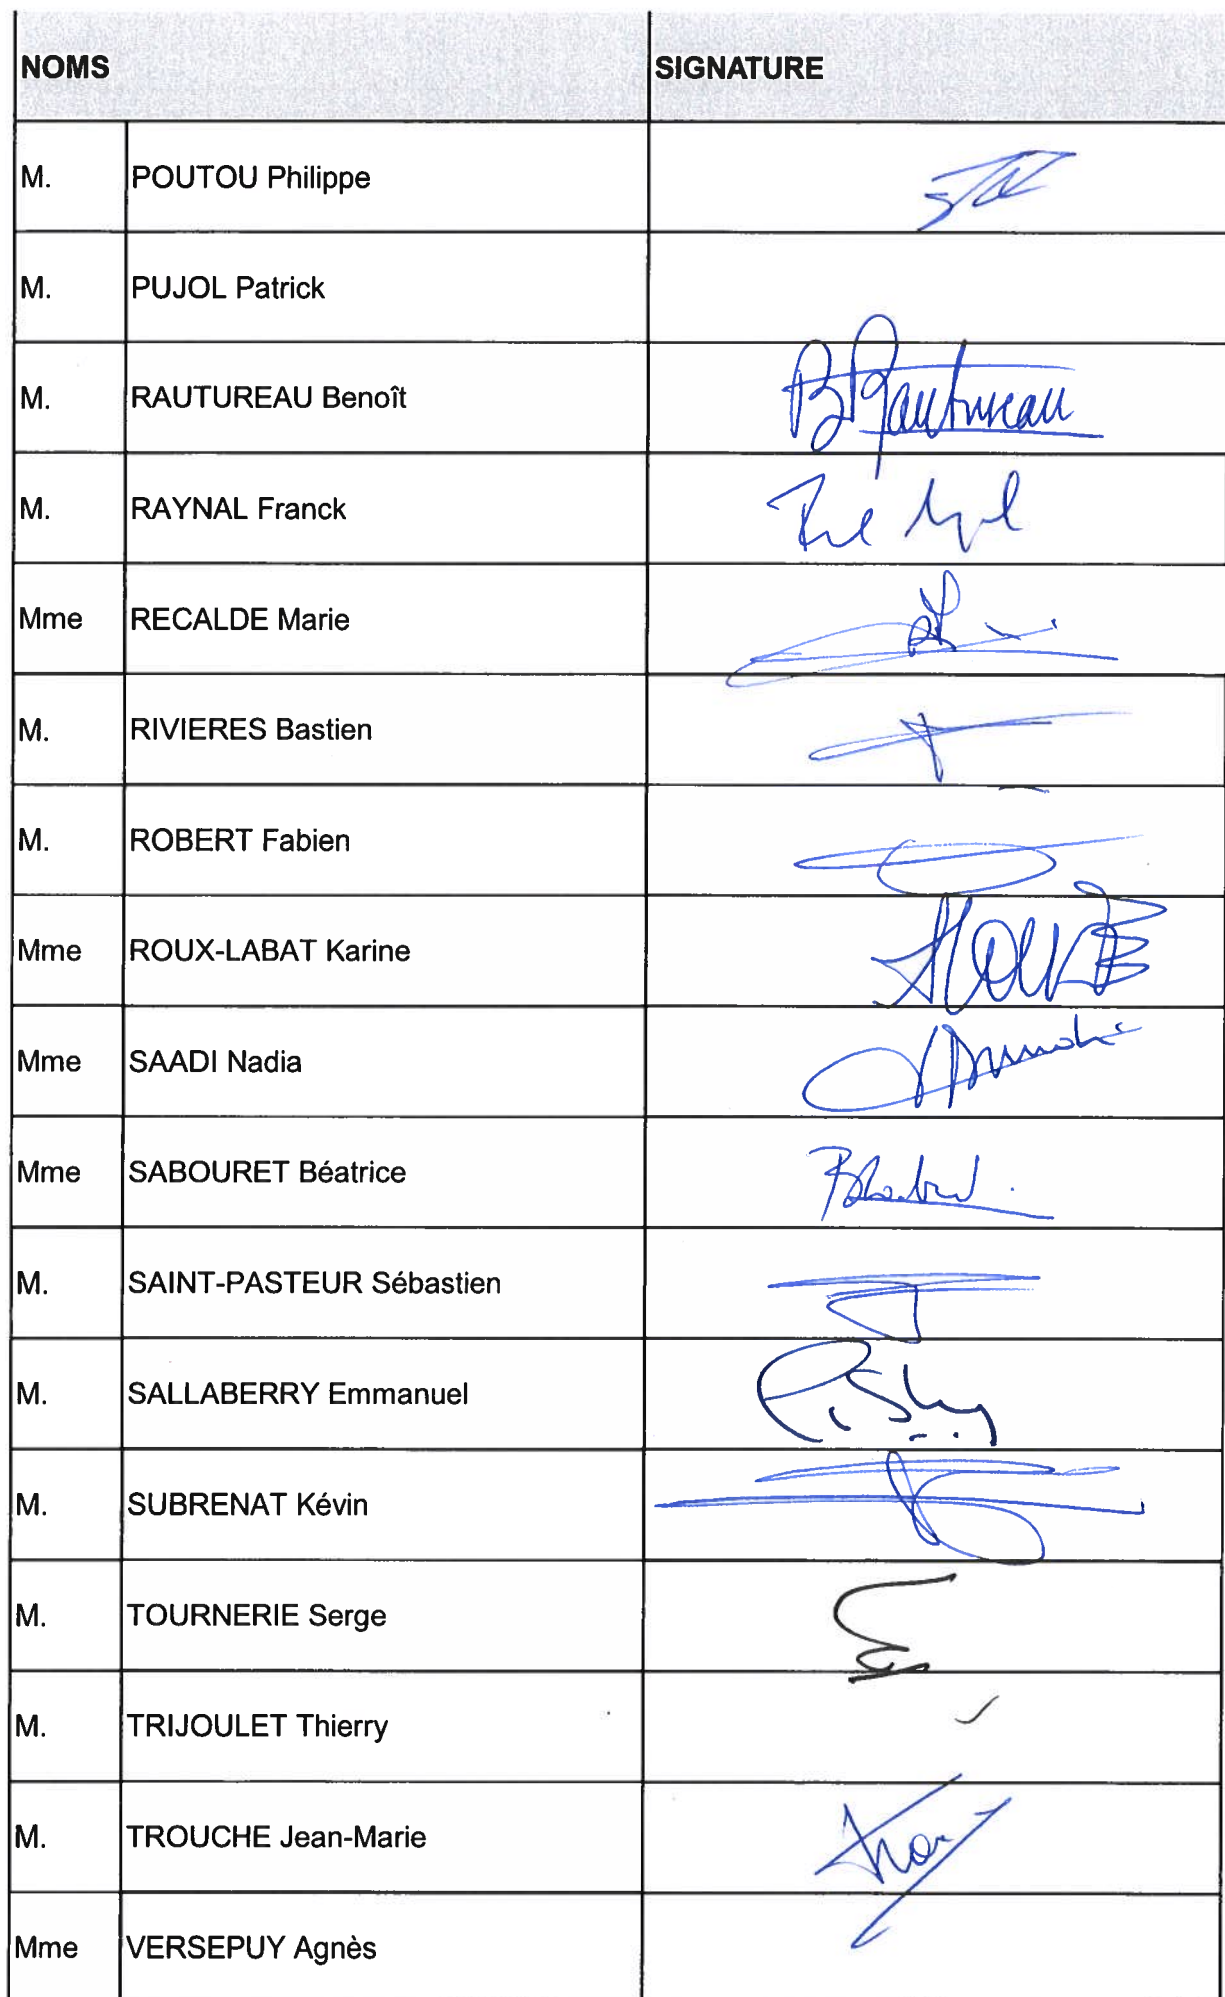 NOMS SIGNATURE
M. POUTOU Philippe
M. PUJOL Patrick
M. RAUTUREAU Benoît B Rautureau
M. RAYNAL Franck
Mme RECALDE Marie
M. RIVIERES Bastien
M. ROBERT Fabien
Mme ROUX-LABAT Karine
Mme SAADI Nadia
Mme SABOURET Béatrice
M. SAINT-PASTEUR Sébastien
M. SALLABERRY Emmanuel
M. SUBRENAT Kévin
M. TOURNERIE Serge
M. TRIJOULET Thierry
M. TROUCHE Jean-Marie
Mme VERSEPUY Agnès